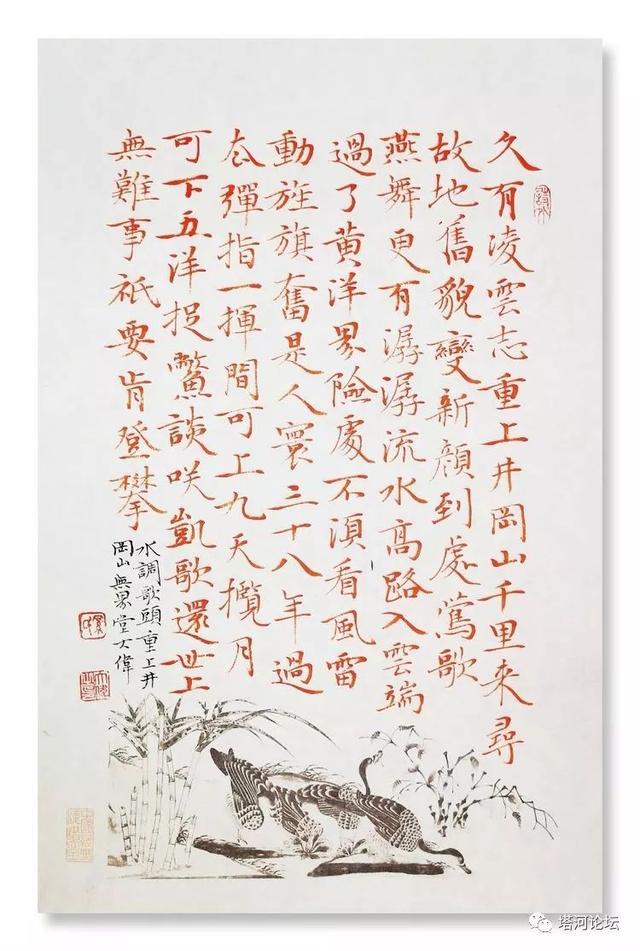 久有凌雲志重上井岡山千里來尋
故地舊貌變新顏到處鶯歌
燕舞更有潺潺流水高路入雲端
過了黃洋界險處不須看風雷
動旌旗奮是人寰三十八年過
去彈指一揮間可上九天攬月
可下五洋捉鱉談咲凱歌還世上
無難事祇要肯登攀
水調歌頭重上井
岡山無界堂大偉
塔河论坛